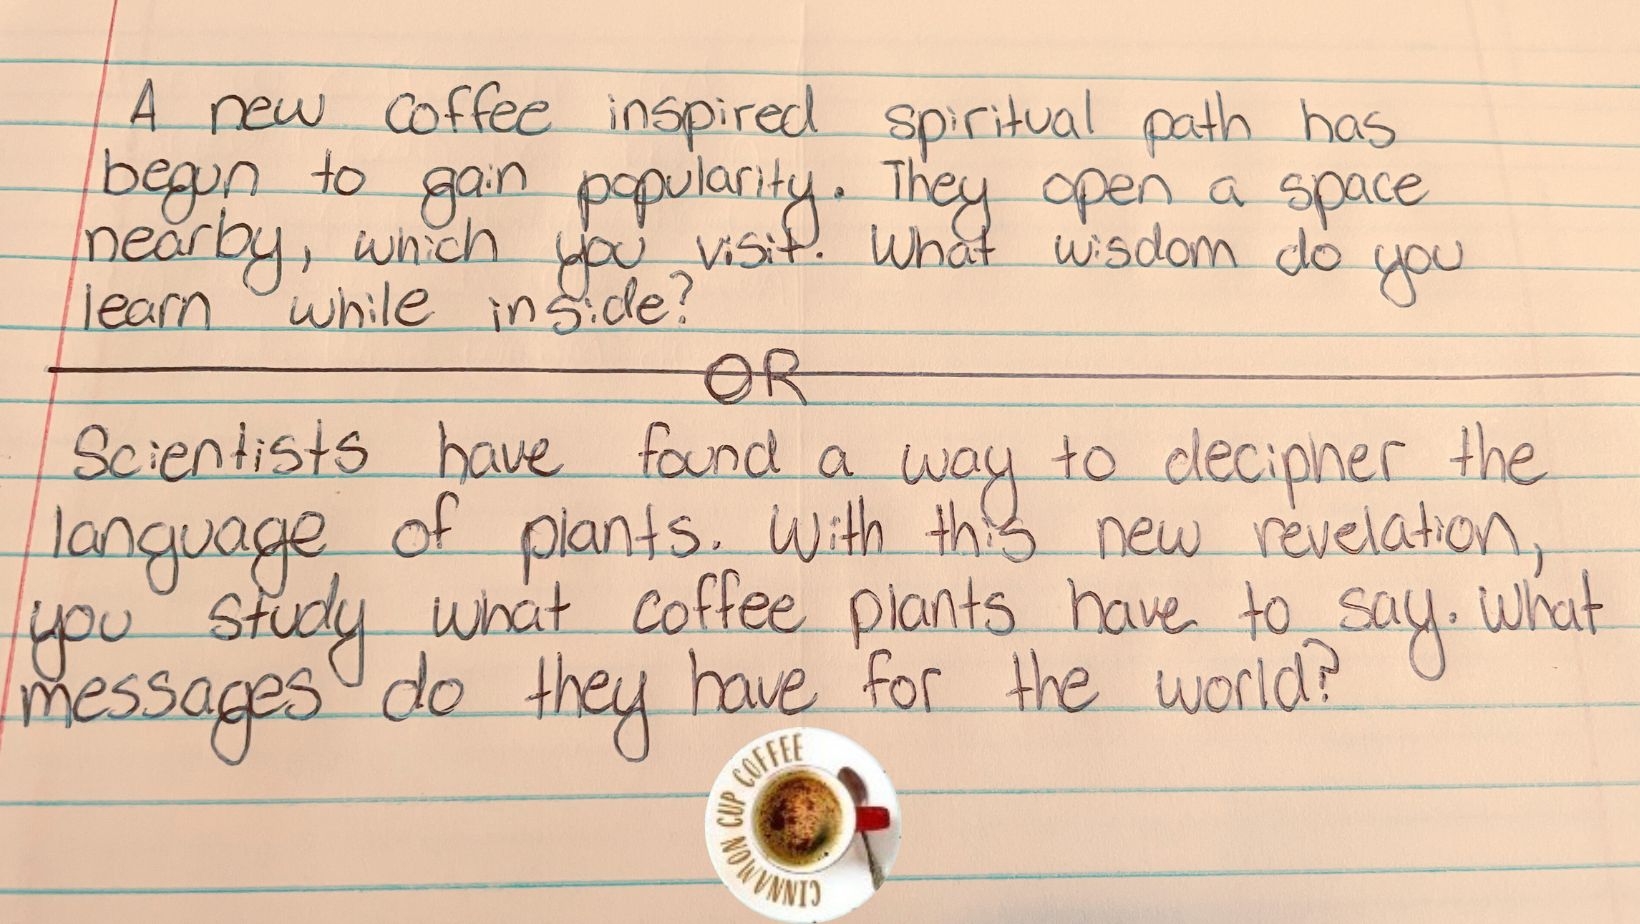 A new coffee inspired spiritual path has
begun to gain popularity. They open a space
nearby, which you visit. What wisdom do you
learn while inside?
OR
Scientists have found a way to decipher the
language of plants. With this new revelation,
you study what coffee plants have to say. What
messages do they have for the world?
CINNAMON CUP COFFEE